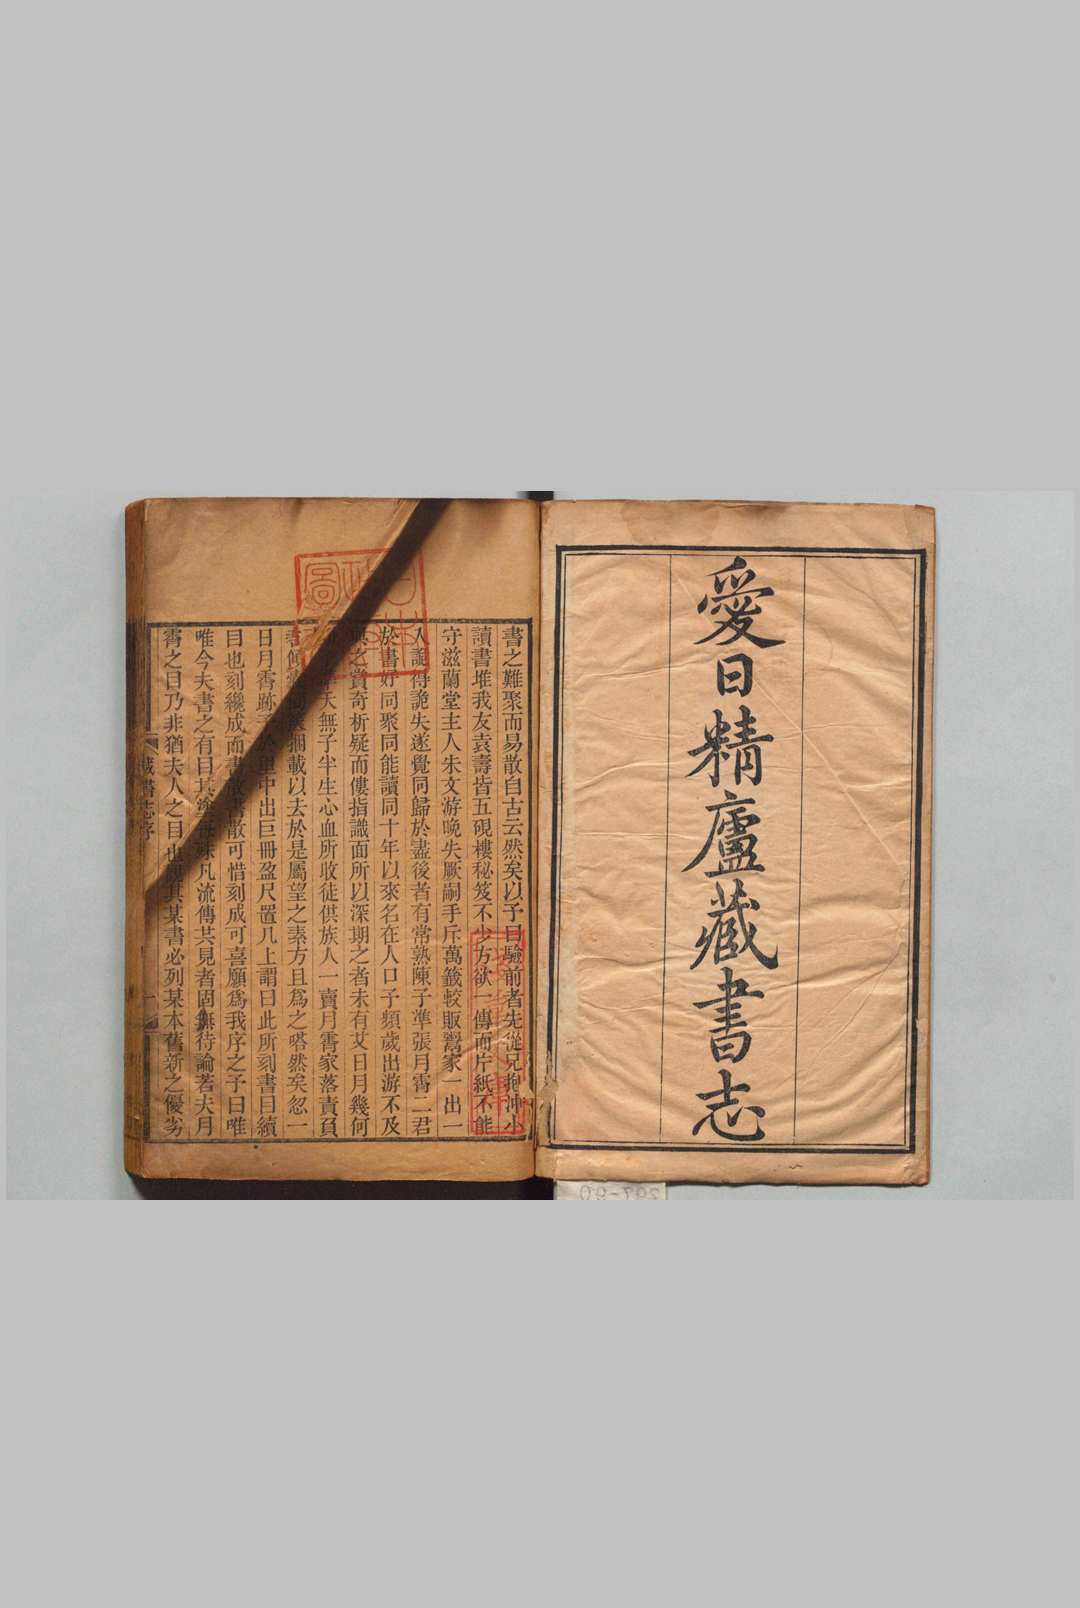 愛日精廬藏書志
書之難聚而易散自古云然矣以予目驗前者先從兄抱沖小
讀書堆我友袁壽皆五硯樓秘笈不少方欲一傳而片紙不能
守滋蘭堂主人朱文游晚失厥嗣手斥萬籤較販鬻家一出一
入誕得詭失遂覺同歸於盡後者有常熟陳子準張月霄二君
於書好同聚同能讀同十年以來名在人口予頻歲出游不及
之賞奇析疑而僂指識面所以深期之者未有艾日月幾何
天無子半生心血所收徒供族人一賣月霄家落責負
捆載以去於是屬望之素方且爲之嗒然矣忽一
日月霄跡予於里中出巨冊盈尺置几上謂曰此所刻書目續
目也刻纔成而書散書散可惜刻成可喜願爲我序之予曰唯
唯今夫書之有目其塗每殊凡流傳共見者固無待論若夫月
霄之目乃非猶夫人之目也觀其某書必列某本舊新之優劣
藏書志序
一